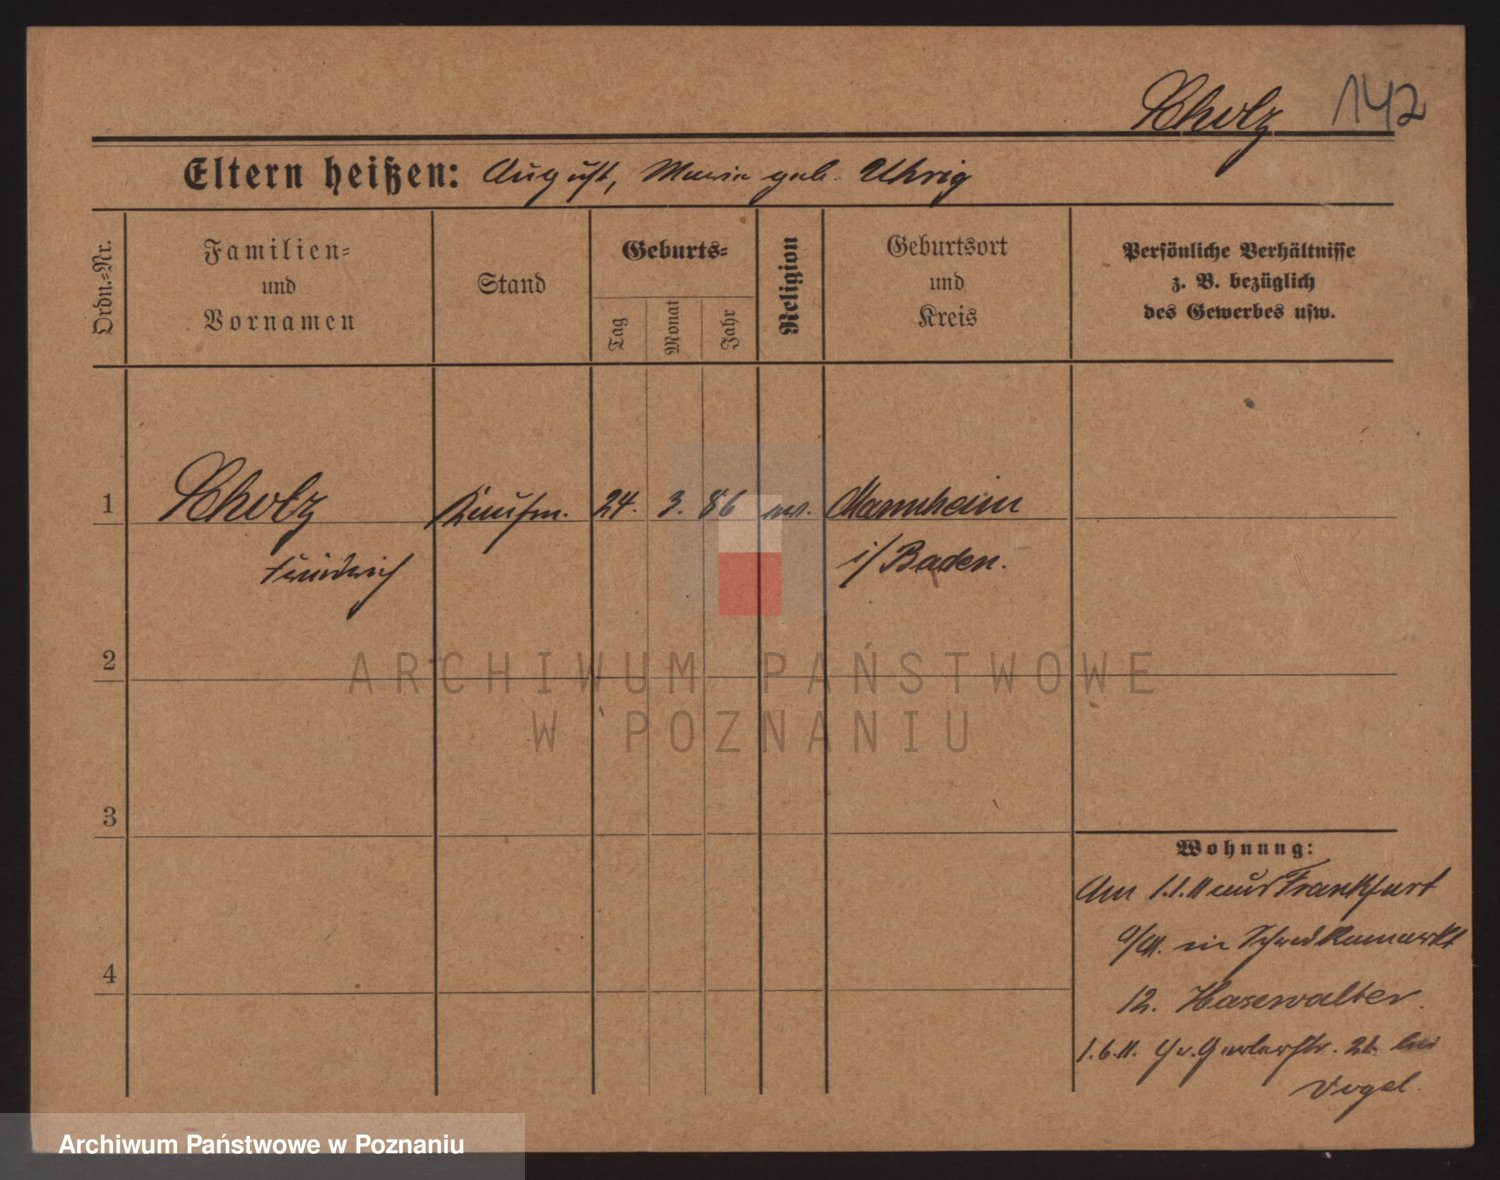 Scholz 142
Eltern heißen: August, Maria geb. Uhrig
Ordn.=Nr.
Familien=
und
Vornamen
Stand
Geburts=
Tag
Monat
Jahr
Religion
Geburtsort
und
Kreis
Persönliche Verhältnisse
z. B. bezüglich
des Gewerbes usw.
1 Scholz Kaufm. 24. 3. 86 Mannheim
Friedrich i/Baden.
2
3
4
Wohnung:
Am 1.1.11 aus Frankfurt
12. Hasewalter.
1.6.11. 21 bei
Vogel.
ARCHIWUM PAŃSTWOWE
W POZNANIU
Archiwum Państwowe w Poznaniu